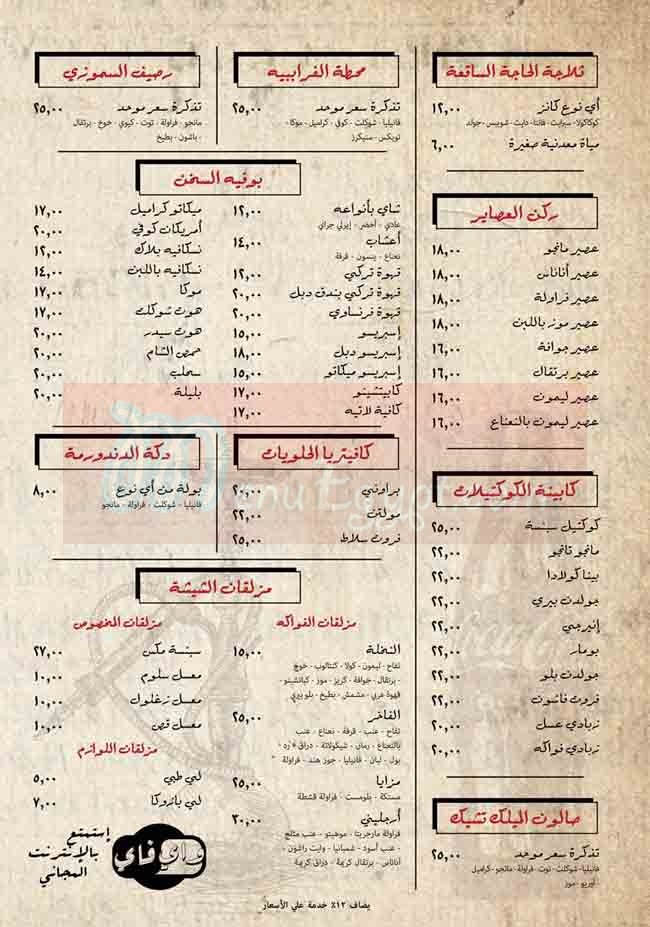 ثلاجة الحاجة الساقعة
أي نوع كانز ١٢,٠٠
كوكاكولا - سبرايت - فانتا - دايت - شويبس - جولد
مياة معدنية صغيرة ٦,٠٠
ركن العصاير
عصير مانجو ١٨,٠٠
عصير أناناس ١٨,٠٠
عصير فراولة ١٨,٠٠
عصير موز باللبن ١٨,٠٠
عصير جوافة ١٦,٠٠
عصير برتقال ١٦,٠٠
عصير ليمون ١٦,٠٠
عصير ليمون بالنعناع ١٦,٠٠
كابينة الكوكتيلات
كوكتيل سبنسة ٢٥,٠٠
مانجو تانجو ٢٢,٠٠
بينا كولادا ٢٢,٠٠
جولدن بيري ٢٢,٠٠
إنيرجي ٢٢,٠٠
بومار ٢٢,٠٠
جولدن بلو ٢٢,٠٠
فروت فاشون ٢٢,٠٠
زبادي عسل ٢٠,٠٠
زبادي فواكه ٢٠,٠٠
صالون الميلك تشيك
تذكرة سعر موحد ٢٥,٠٠
فانيليا - شوكلت - توت - فراولة - مانجو - كراميل
- أوريو - موز
محطة الفرابيه
تذكرة سعر موحد ٢٥,٠٠
فانيليا - شوكلت - كوفي - كراميل - موكا -
تويكس - سنيكرز
رصيف السموزي
تذكرة سعر موحد ٢٥,٠٠
مانجو - فراولة - توت - كيوي - خوخ - برتقال
- باشون - بطيخ
بوفيه السخن
شاي بأنواعه ١٢,٠٠
عادي - أخضر - إيرلي جراي
أعشاب ١٤,٠٠
نعناع - ينسون - قرفة
قهوة تركي ١٢,٠٠
قهوة تركي بندق دبل ٢٠,٠٠
قهوة فرنساوي ٢٠,٠٠
إسبريسو ١٥,٠٠
إسبريسو دبل ١٨,٠٠
إسبريسو ميكاتو ١٥,٠٠
كابيتشينو ١٧,٠٠
كافية لاتيه ١٧,٠٠
ميكاتو كراميل ١٧,٠٠
أمريكان كوفي ٢٠,٠٠
نسكافيه بلاك ١٢,٠٠
نسكافيه باللبن ١٤,٠٠
موكا ١٧,٠٠
هوت شوكلت ١٧,٠٠
هوت سيدر ٢٠,٠٠
حمص الشام ٢٠,٠٠
سحلب ٢٠,٠٠
بليلة ٢٠,٠٠
كافيتريا الحلويات
براوني ٢٠,٠٠
مولتن ٢٢,٠٠
فروت سلاط ٢٥,٠٠
دكة الدندورمة
بولة من أي نوع ٨,٠٠
فانيليا - شوكلت - فراولة - مانجو
مزلقان الشيشة
مزلقان الفواكه
النخلة ١٥,٠٠
تفاح - ليمون - كولا - كنتالوب - خوخ
- برتقال - جوافة - كريز - موز - كبانشينو -
قهوة عربي - مشمش - بطيخ - بلو بيري
الفاخر ٢٥,٠٠
تفاح - عنب - قرفة - نعناع - عنب
بالنعناع - رمان - شيكولاتة - دراق
بول - لبان - فانيليا - جوز هند - فراولة
مزايا ٢٥,٠٠
مستكة - بلومست - فراولة قشطة
أرجليني ٣٠,٠٠
فراولة مارجريتا - موهيتو - عنب مثلج
- عنب أسود - شمبانيا - وايت راشون -
أناناس - برتقال كريمة - دراق كريمة
مزلقان المخصوص
سبنسة مكس ٢٧,٠٠
معسل سلوم ١٠,٠٠
معسل زغلول ١٠,٠٠
معسل قص ١٠,٠٠
مزلقان اللوازم
لي طبي ٥,٠٠
لي باتروكا ٧,٠٠
إستمتع
بالإنترنت
المجاني
واي فاي
يضاف ١٢٪ خدمة علي الأسعار